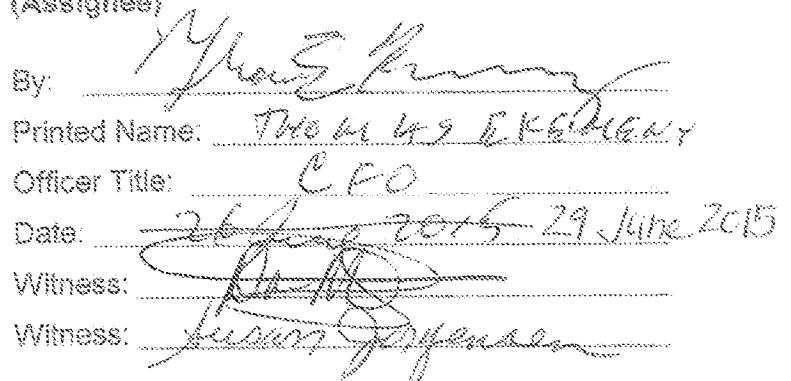 (Assignee)
By:
Printed Name: THOMAS E KEMENY
Officer Title: CFO
Date: 26 June 2015 29 June 2015
Witness:
Witness: Susan Jorgensen